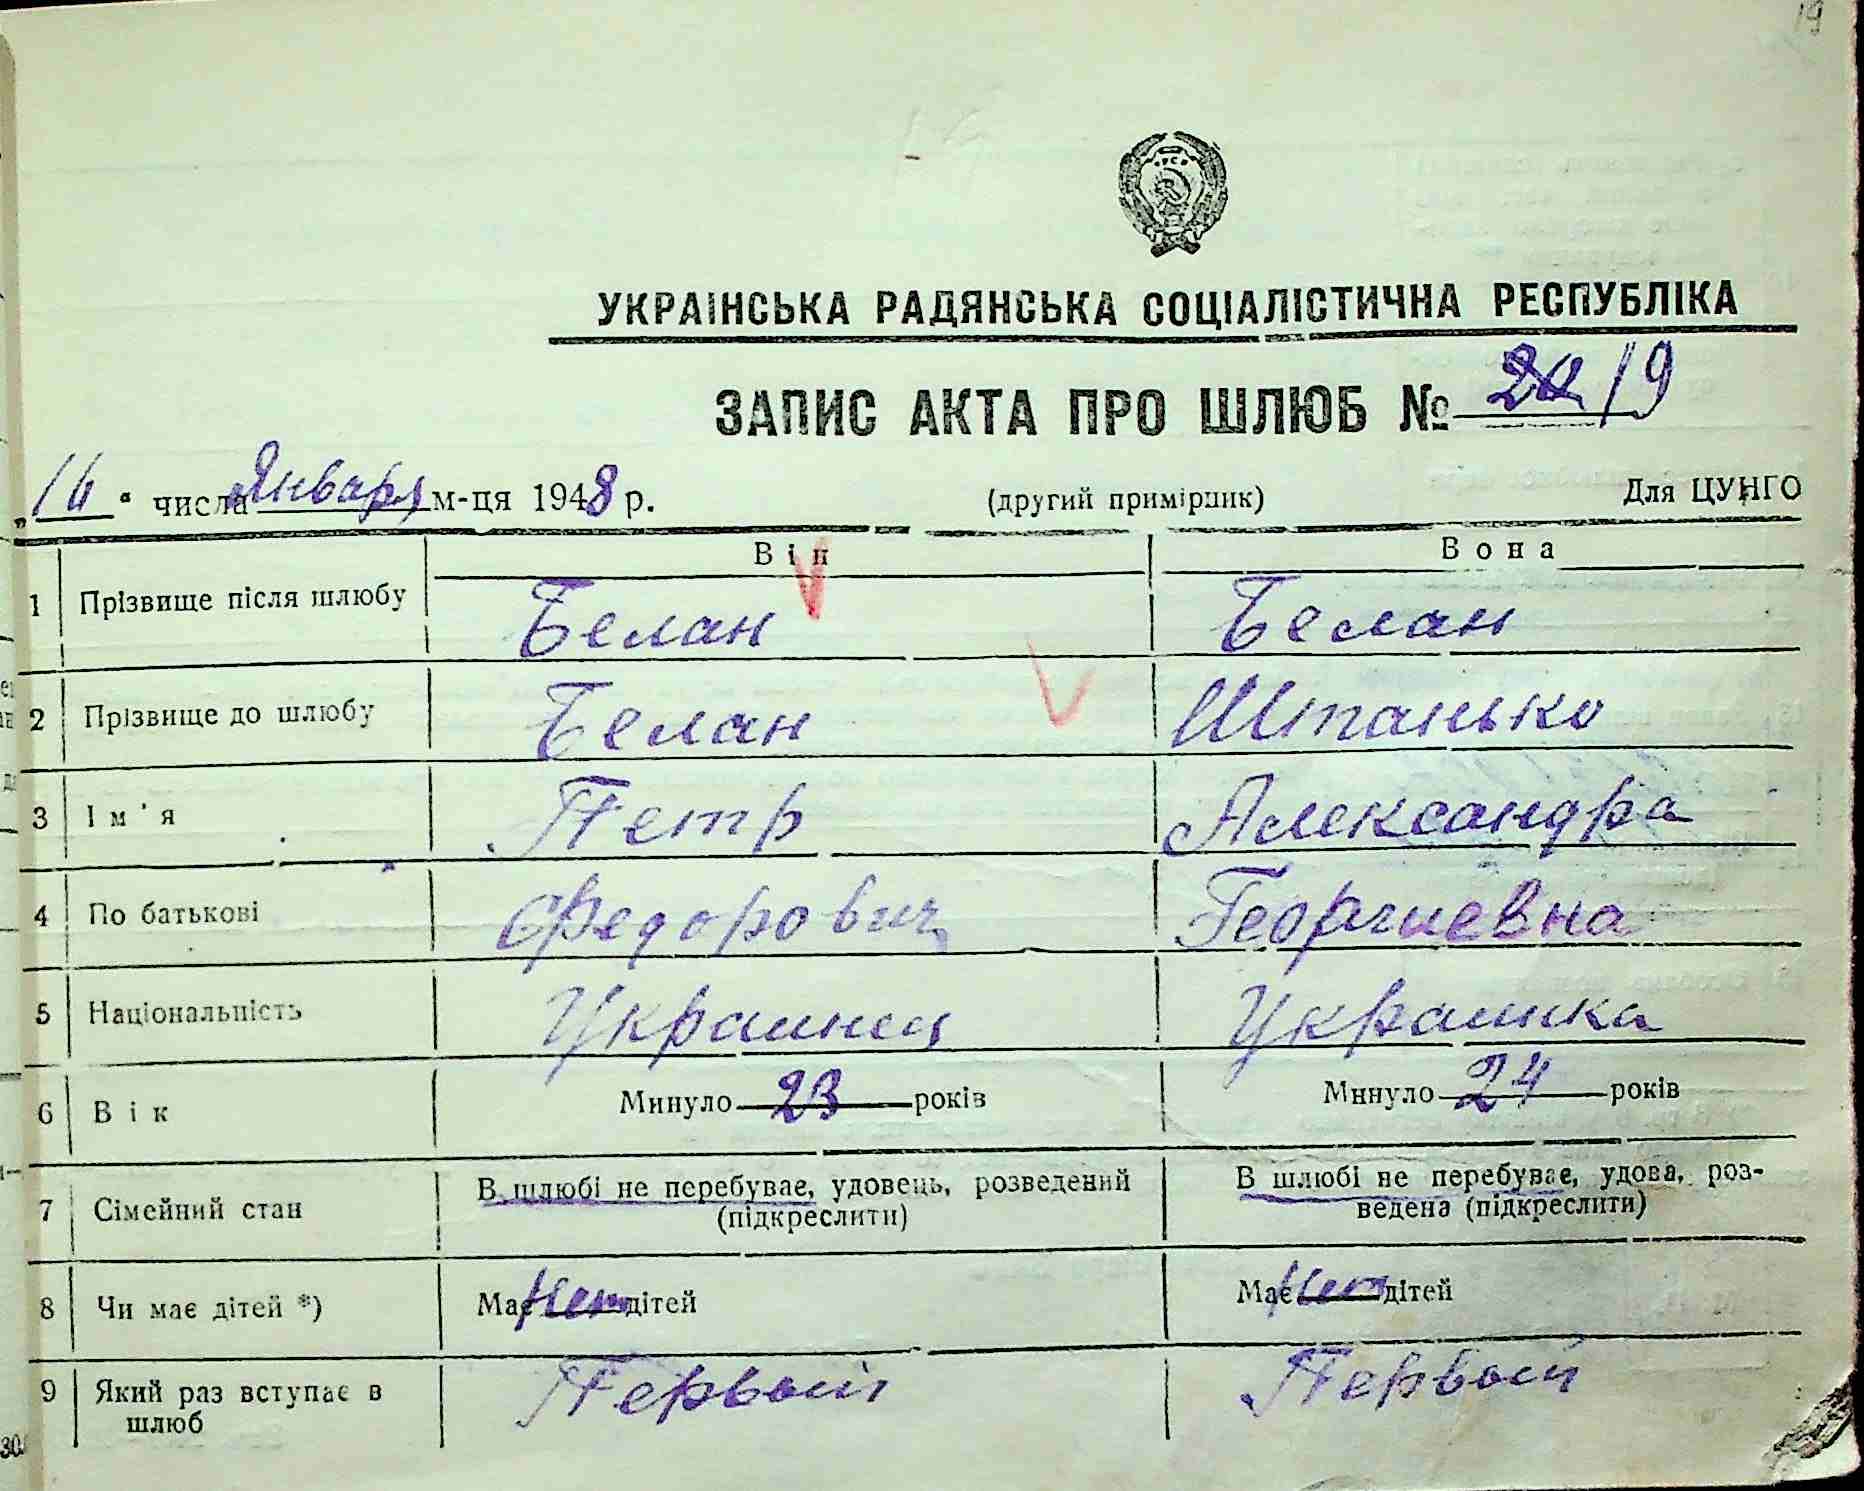 19
УКРАІНСЬКА РАДЯНСЬКА СОЦІАЛІСТИЧНА РЕСПУБЛІКА
ЗАПИС АКТА ПРО ШЛЮБ № 20 19
„16“ числа Января м-ця 1948 р. (другий примірник) Для ЦУНГО
Він Вона
1 Прізвище після шлюбу Белан Белан
2 Прізвище до шлюбу Белан Штанько
3 Ім'я Петр Александра
4 По батькові Федорович Георгиевна
5 Національність Украинец Украинка
6 Вік Минуло 23 років Минуло 24 років
7 Сімейний стан В шлюбі не перебуває, удовець, розведений (підкреслити) В шлюбі не перебуває, удова, роз-
ведена (підкреслити)
8 Чи має дітей *) Має Нет дітей Має Нет дітей
9 Який раз вступає в шлюб Первый Первый